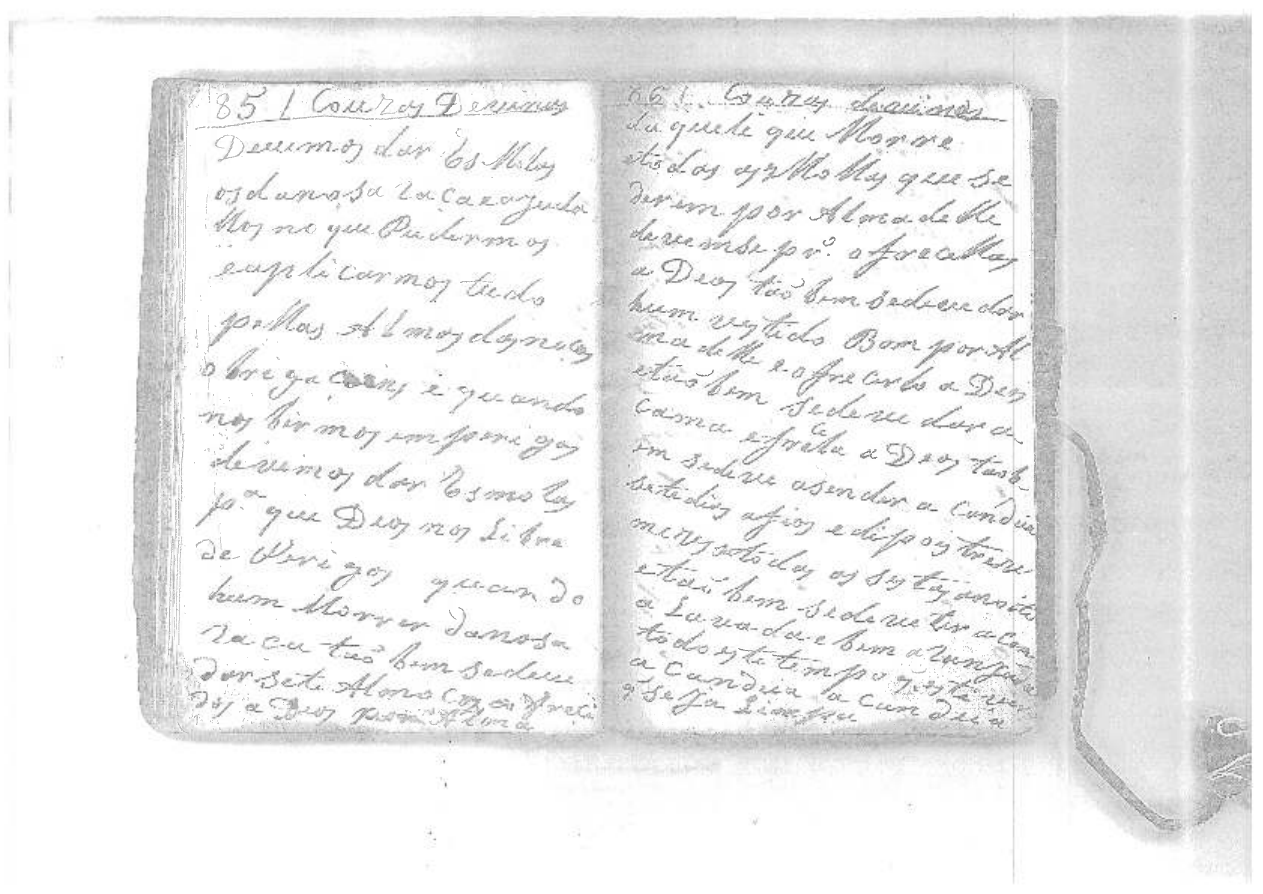 85 / Couzas Devinas
Devemos dar Es Molas
os danosa Raca e ajuda
llos no que Pudermos
e aplicarmos tudo
pellas Almas das nosas
obrigacoins e quando
nos birmos em perigos
devemos dar Esmolas
pª que Deos nos Libre
de Perigos quando
hum Morrer danosa
Raca tão bem sedeve
dar sete Almocos ofreci
dos a Deos por Alma
86 / Couzas devinas
da quele que Morre
etodas as esMollas que se
derem por Alma delle
devemse prº. ofrecellas
a Deos tão bem sedeve dar
hum vestido Bom por Al
ma delle e ofrecerlo a Deos
etão bem sedeve dar a
cama efrecela a Deos taob
em sedeve asender a Candia
sete dias afios e dipois treze
mezes todas as sestas anoite
etão bem sedeve ter a cama
a Lavada e bem aranjada
todo este tempo q estiver
a Candia a Candia
q seja Limpa